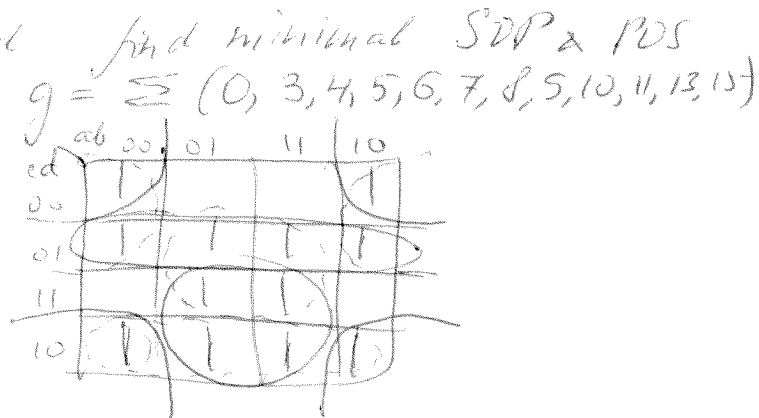 find minimal SOP & POS
g = Σ (0, 3, 4, 5, 6, 7, 8, 9, 10, 11, 13, 15)
ab 00 01 11 10
cd
00 1 1
01 1 1 1 1
11 1 1
10 1 1 1 1